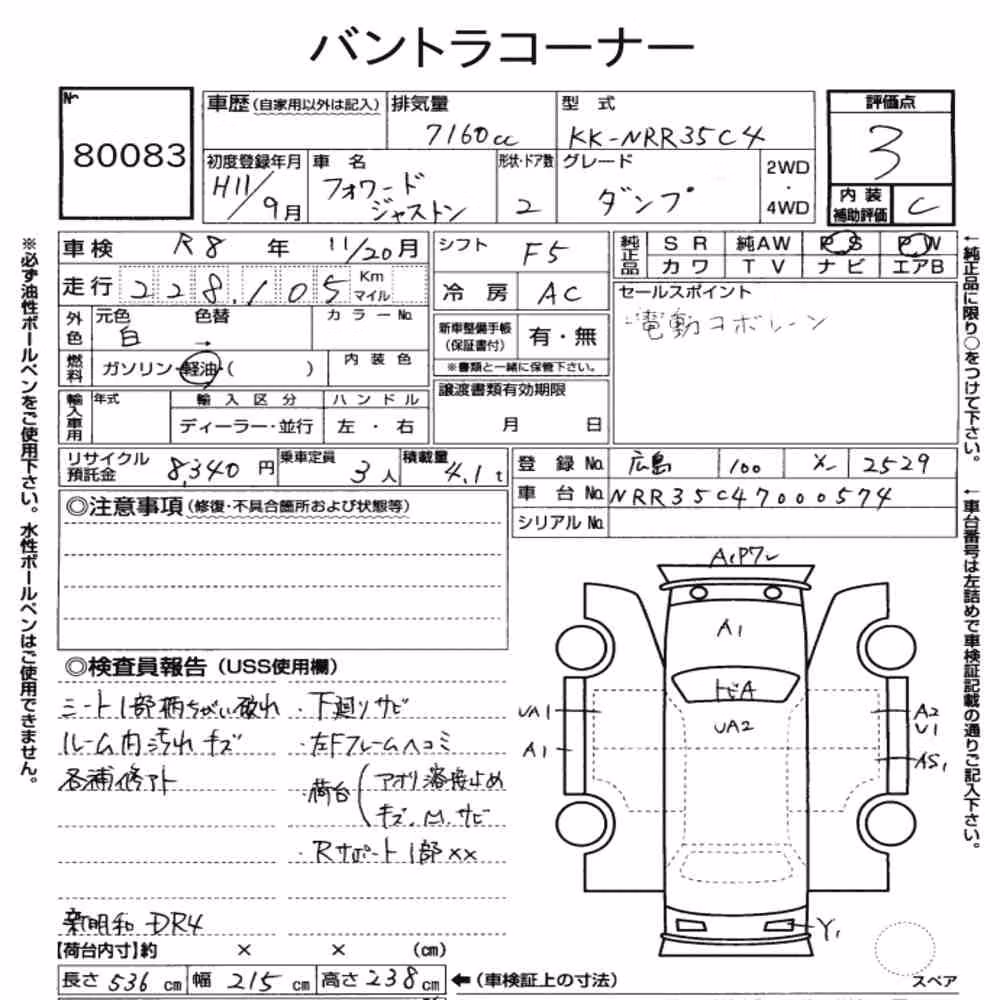 バントラコーナー
No
80083
車歴(自家用以外は記入)
排気量
7160cc
型 式
KK-NRR35C4
評価点
3
内装
補助評価
C
初度登録年月
H11/9月
車 名
フォワード
ジャストン
形状・ドア数
2
グレード
ダンプ
2WD
・
4WD
車検 R8 年 11/20月
走行 228,105 Km
マイル
外色
元色
白
色替
→
カラーNo.
燃料
ガソリン・軽油・( )
内装色
輸入車用
年式
輸入区分
ディーラー・並行
ハンドル
左・右
シフト F5
冷房 AC
新車整備手帳
(保証書付)
有・無
※書類と一緒に保管下さい。
譲渡書類有効期限
月 日
純正品
SR 純AW PS PW
カワ TV ナビ エアB
セールスポイント
電動コボレーン
リサイクル
預託金
8,340円
乗車定員
3人
積載量
4.1t
登録No. 広島 100 2529
車台No. NRR35C47000574
シリアルNo.
◎注意事項(修復・不具合箇所および状態等)
◎検査員報告(USS使用欄)
シート1部柄ちがい破れ
ルーム内汚れキズ
各補修アト
新明和 DR4
・下廻りサビ
・左Fフレームヘコミ
・荷台(アオリ溶接止め
キズ、凹、サビ
・Rサポート1部××
A1
トビA
UA2
UA1
A1
A2
U1
AS1
Y1
スペア
【荷台内寸】約 × × (cm)
長さ 536 cm 幅 215 cm 高さ 238 cm ←(車検証上の寸法)
※必ず油性ボールペンをご使用下さい。水性ボールペンはご使用できません。
←純正品に限り○をつけて下さい。
←車台番号は左詰めで車検証記載の通りご記入下さい。